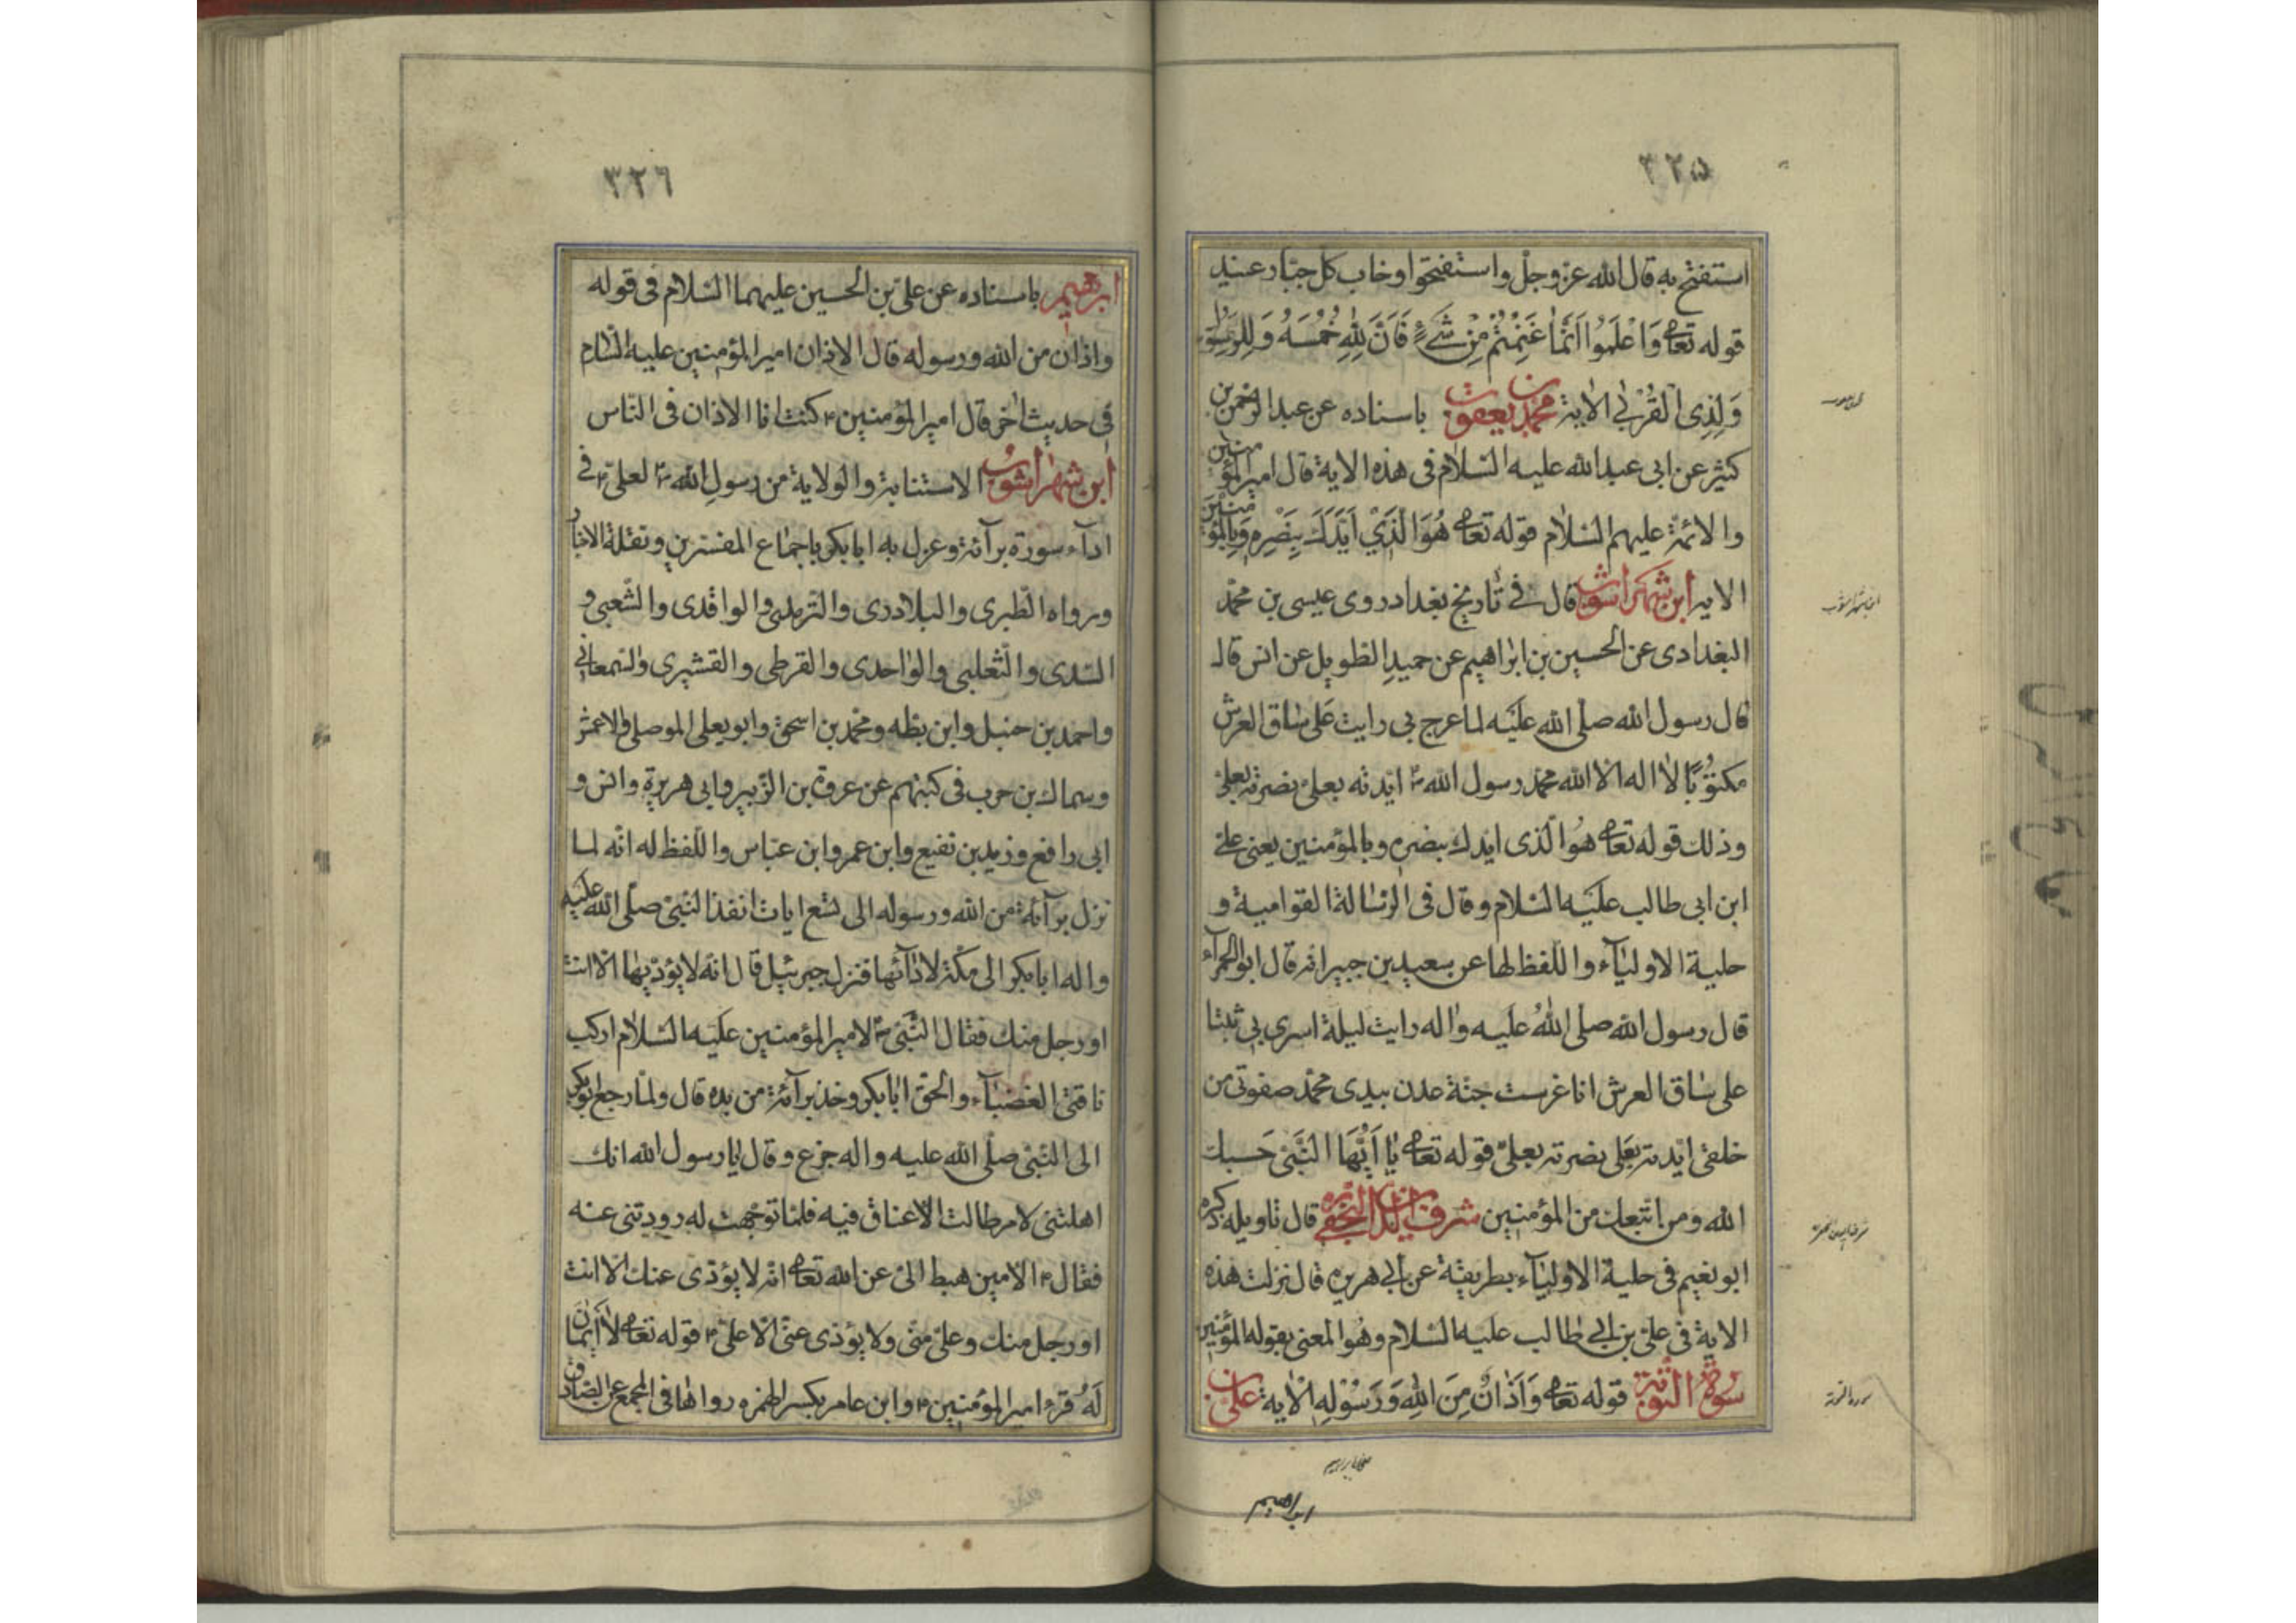 ٣٢٥
استفتح به قال الله عز وجل واستفتحوا وخاب كل جبار عنيد
قوله تعالى وَاعْلَمُوا اَنَّمَا غَنِمْتُمْ مِنْ شَيْءٍ فَاَنَّ لِلّٰهِ خُمُسَهُ وَلِلرَّسُولِ
وَلِذِي الْقُرْبٰى الاية محمد بن يعقوب باسناده عن عبد الرحمن بن
كثير عن ابى عبد الله عليه السلام فى هذه الاية قال امير المؤمنين
والائمة عليهم السلام قوله تعالى هُوَ الَّذِيْ اَيَّدَكَ بِنَصْرِهِ وَبِالْمُؤْمِنِيْنَ
الاية ابن شهر اشوب قال فى تاريخ بغداد روى عيسى بن محمد
البغدادى عن الحسين بن ابراهيم عن حميد الطويل عن انس قال
قال رسول الله صلى الله عليه لما عرج بى رايت على ساق العرش
مكتوبًا لا اله الا الله محمد رسول الله ص ايدته بعلى نصرته بعلى
وذلك قوله تعالى هُوَ الذى ايدك بنصره وبالمؤمنين يعنى على
ابن ابى طالب عليه السلام وقال فى الرسالة القوامية و
حلية الاولياء واللفظ لها عن سعيد بن جبير انه قال ابو الحمراء
قال رسول الله صلى الله عليه واله رايت ليلة اسرى بى ثبتا
على ساق العرش انا غرست جنة عدن بيدى محمد صفوتى من
خلقى ايدته بعلى نصرته بعلى قوله تعالى يٰا اَيُّهَا النَّبِىّ حَسبك
الله ومن اتبعك من المؤمنين شرف الدين النجفى قال تاويله ذكره
ابو نعيم فى حلية الاولياء بطريقة عن ابى هريره قال نزلت هذه
الاية فى على بن ابى طالب عليه السلام وهو المعنى بقوله المؤمنين
سورة التوبة قوله تعالى وَاَذَانٌ مِنَ اللهِ وَرَسُوْلِهِ الْاية على بن
ابراهيم
محمد بن يعقوب
ابن شهر اشوب
سورة التوبة
٣٢٦
ابرهيم باسناده عن على بن الحسين عليهما السلام فى قوله
واذان من الله ورسوله قال الاذان امير المؤمنين عليه السلام
فى حديث اخر قال امير المؤمنين ع كنت انا الاذان فى الناس
ابن شهر اشوب الاستنابة والولاية من رسول الله ص لعلى ع فى
اداء سورة براءة وعزل به ابا بكر باجماع المفسرين ونقلة الاخبار
ورواه الطبرى والبلادرى والترمذى والواقدى والشعبى و
السدى والثعلبى والواحدى والقرطى والقشيرى والسمعانى
واحمد بن حنبل وابن بطه ومحمد بن اسحق وابو يعلى الموصلى والاعمش
وسماك بن حرب فى كتبهم عن عروة بن الزبير وابى هريرة وانس و
ابى رافع وزيد بن نفيع وابن عمر وابن عباس واللفظ له انه لما
نزل براءة من الله ورسوله الى تسع ايات انفذ النبى صلى الله عليه
واله ابا بكر الى مكة لادائها فنزل جبرئيل قال انه لا يؤديها الا انت
او رجل منك فقال النبى ص لامير المؤمنين عليه السلام اركب
ناقتى الغضباء والحق ابا بكر وخذ براءة من يده قال ولما رجع ابو بكر
الى النبى صلى الله عليه واله جزع وقال يا رسول الله انك
اهلتنى لامر طالت الاعناق فيه فلما توجهت له رددتنى عنه
فقال ع الامين هبط الى عن الله تعالى انه لا يؤدى عنك الا انت
او رجل منك وعلى منى ولا يؤدى عنى الا على ع قوله تعالى لاٰ اَيْمٰانَ
لَهُم قرء امير المؤمنين ع وابن عامر بكسر الهمزه رواها فى المجمع عن الصادق